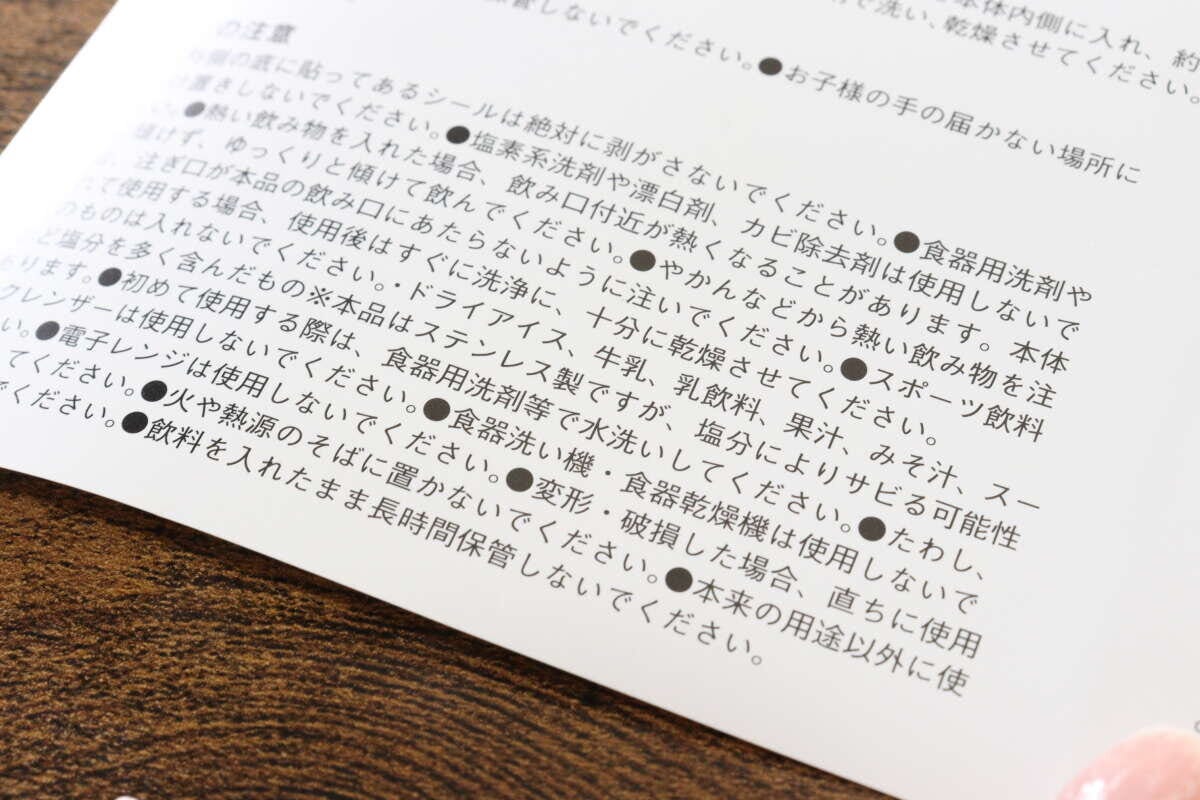 本体内側に入れ、約
で洗い、乾燥させてください。
管しないでください。●お子様の手の届かない場所に
の注意
側の底に貼ってあるシールは絶対に剥がさないでください。●食器用洗剤や
置きしないでください。●塩素系洗剤や漂白剤、カビ除去剤は使用しないで
い。●熱い飲み物を入れた場合、飲み口付近が熱くなることがあります。本体
傾けず、ゆっくりと傾けて飲んでください。●やかんなどから熱い飲み物を注
、注ぎ口が本品の飲み口にあたらないように注いでください。●スポーツ飲料
て使用する場合、使用後はすぐに洗浄に、十分に乾燥させてください。
のものは入れないでください。・ドライアイス、牛乳、乳飲料、果汁、みそ汁、スー
ど塩分を多く含んだもの※本品はステンレス製ですが、塩分によりサビる可能性
ります。●初めて使用する際は、食器用洗剤等で水洗いしてください。●たわし、
クレンザーは使用しないでください。●食器洗い機・食器乾燥機は使用しないで
い。●電子レンジは使用しないでください。●変形・破損した場合、直ちに使用
てください。●火や熱源のそばに置かないでください。●本来の用途以外に使
でください。●飲料を入れたまま長時間保管しないでください。